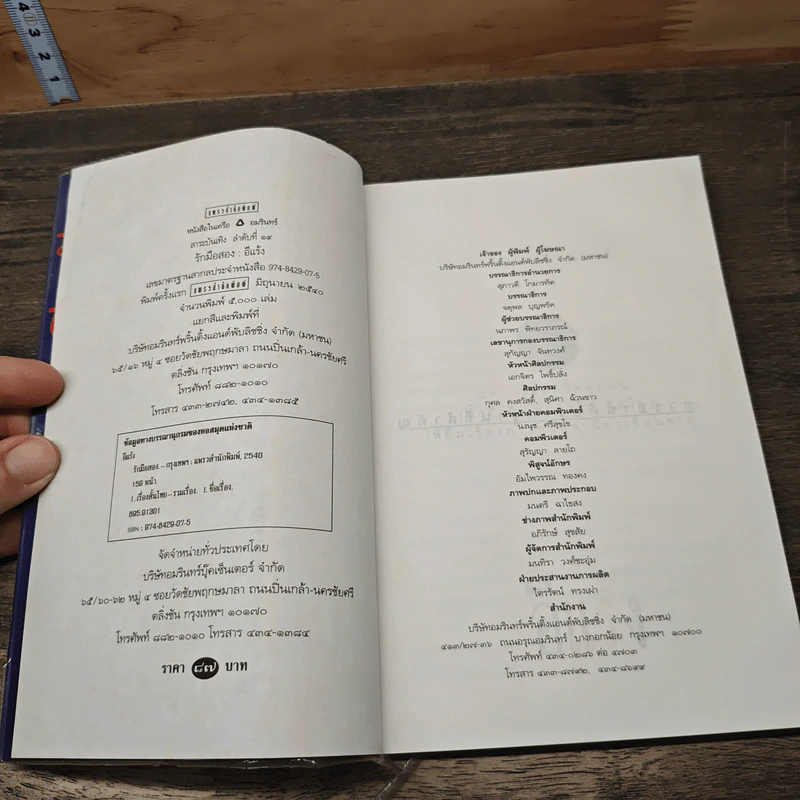 แพรวสำนักพิมพ์
หนังสือในเครือ อมรินทร์
สาระบันเทิง ลำดับที่ ๑๙
รักมือสอง : อีแร้ง
เลขมาตรฐานสากลประจำหนังสือ 974-8429-07-5
พิมพ์ครั้งแรก แพรวสำนักพิมพ์ มิถุนายน ๒๕๔๐
จำนวนพิมพ์ ๕,๐๐๐ เล่ม
แยกสีและพิมพ์ที่
บริษัทอมรินทร์พริ้นติ้งแอนด์พับลิชชิ่ง จำกัด (มหาชน)
๖๕/๑๖ หมู่ ๔ ซอยวัดชัยพฤกษมาลา ถนนปิ่นเกล้า-นครชัยศรี
ตลิ่งชัน กรุงเทพฯ ๑๐๑๗๐
โทรศัพท์ ๘๘๒-๑๐๑๐
โทรสาร ๔๓๓-๒๗๔๒, ๔๓๔-๑๓๘๕
ข้อมูลทางบรรณานุกรมของหอสมุดแห่งชาติ
อีแร้ง
รักมือสอง.-กรุงเทพฯ : แพรวสำนักพิมพ์, 2540
159 หน้า.
1. เรื่องสั้นไทย-รวมเรื่อง. I. ชื่อเรื่อง.
895.91301
ISBN : 974-8429-07-5
จัดจำหน่ายทั่วประเทศโดย
บริษัทอมรินทร์บุ๊คเซ็นเตอร์ จำกัด
๖๕/๖๐-๖๒ หมู่ ๔ ซอยวัดชัยพฤกษมาลา ถนนปิ่นเกล้า-นครชัยศรี
ตลิ่งชัน กรุงเทพฯ ๑๐๑๗๐
โทรศัพท์ ๘๘๒-๑๐๑๐ โทรสาร ๔๓๔-๑๓๘๔
ราคา ๘๗ บาท
เจ้าของ ผู้พิมพ์ ผู้โฆษณา
บริษัทอมรินทร์พริ้นติ้งแอนด์พับลิชชิ่ง จำกัด (มหาชน)
บรรณาธิการอำนวยการ
สุภาวดี โกมารทัต
บรรณาธิการ
จตุพล บุญพรัด
ผู้ช่วยบรรณาธิการ
นภาพร พิทยวราภรณ์
เลขานุการกองบรรณาธิการ
สุกัญญา จันทวงศ์
หัวหน้าศิลปกรรม
เอกจิตร โพธิ์ปลั่ง
ศิลปกรรม
กุศล คงสวัสดิ์, สุนิศา ฉ้วนขาว
หัวหน้าฝ่ายคอมพิวเตอร์
นงนุช ศรีสุขโข
คอมพิวเตอร์
สุรัญญา ลายโถ
พิสูจน์อักษร
อัมไพวรรณ ทองคง
ภาพปกและภาพประกอบ
มนตรี ฉาไธสง
ช่างภาพสำนักพิมพ์
อภิรักษ์ สุขสัย
ผู้จัดการสำนักพิมพ์
มนทิรา วงศ์ชะอุ่ม
ฝ่ายประสานงานการผลิต
ไตรรัตน์ ทรงเผ่า
สำนักงาน
บริษัทอมรินทร์พริ้นติ้งแอนด์พับลิชชิ่ง จำกัด (มหาชน)
๔๑๓/๒๗-๓๖ ถนนอรุณอมรินทร์ บางกอกน้อย กรุงเทพฯ ๑๐๗๐๐
โทรศัพท์ ๔๓๔-๐๒๘๖ ต่อ ๔๗๐๓
โทรสาร ๔๓๓-๘๗๙๒, ๔๓๔-๘๖๙๙
4 3 2 1